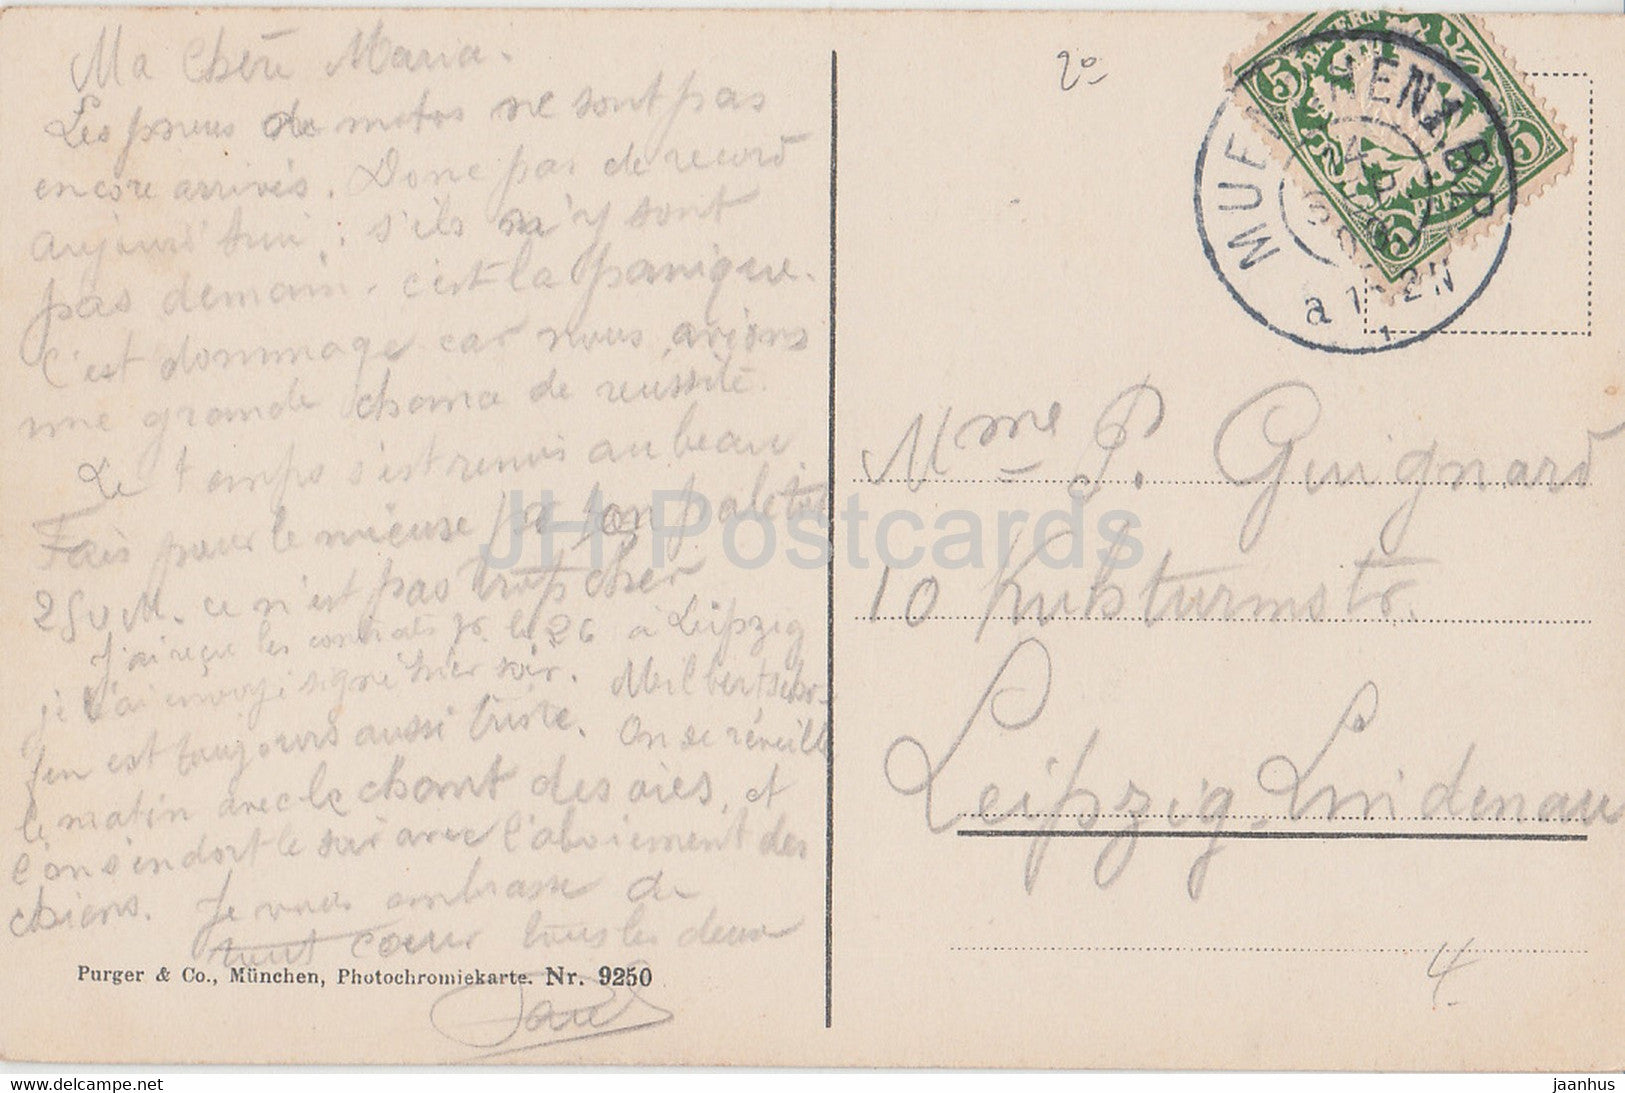 Ma Chère Maria.
Les pneus de motos ne sont pas
encore arrivés. Donc pas de record
aujourd'hui; s'ils n'y sont
pas demain, c'est la panique.
C'est dommage car nous avions
une grande chance de réussite.
Le temps s'est remis au beau
Fais pour le mieux pr ton paletot
250 M. ce n'est pas trop cher
J'ai reçu les contrats pr le 26 à Leipzig
je l'ai envoyé signé hier soir. Milbertsho-
fen est toujours aussi triste. On se réveille
le matin avec le chant des oies, et
l'on s'endort le soir avec l'aboiement des
chiens. Je vous embrasse de
tout coeur tous les deux
Paul
Purger & Co., München, Photochromiekarte. Nr. 9250
20
BAYERN
5
5
5
MUENCHEN 1. B.P.
4
Mme P. Guignard
10 Kuhturmstr.
Leipzig-Lindenau
4
JH Postcards
www.delcampe.net
jaanhus